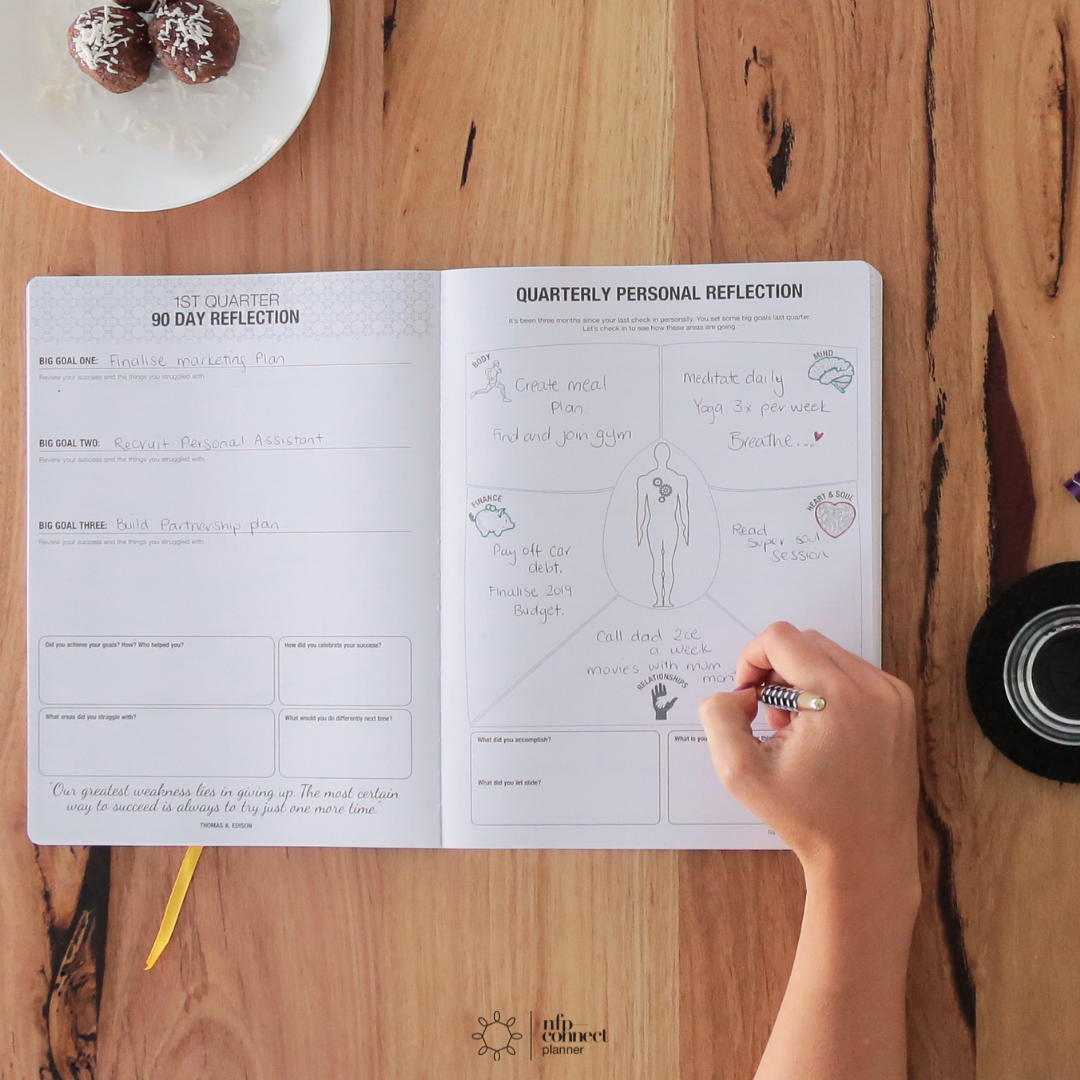 1ST QUARTER
90 DAY REFLECTION
BIG GOAL ONE: Finalise marketing Plan
Review your success and the things you struggled with
BIG GOAL TWO: Recruit Personal Assistant
Review your success and the things you struggled with
BIG GOAL THREE: Build Partnership plan
Review your success and the things you struggled with
Did you achieve your goals? How? Who helped you?
How did you celebrate your success?
What areas did you struggle with?
What would you do differently next time?
"Our greatest weakness lies in giving up. The most certain
way to succeed is always to try just one more time."
THOMAS A. EDISON
QUARTERLY PERSONAL REFLECTION
It's been three months since your last check in personally. You set some big goals last quarter.
Let's check in to see how these areas are going.
BODY
Create meal
Plan.
Find and join gym
MIND
Meditate daily
Yoga 3x per week
Breathe...
FINANCE
Pay off car
debt.
Finalise 2019
Budget.
HEART & SOUL
Read
super soul
session
Call dad 2ce
a week
movies with mum
RELATIONSHIPS
What did you accomplish?
What did you let slide?
What is
nfp
connect
planner